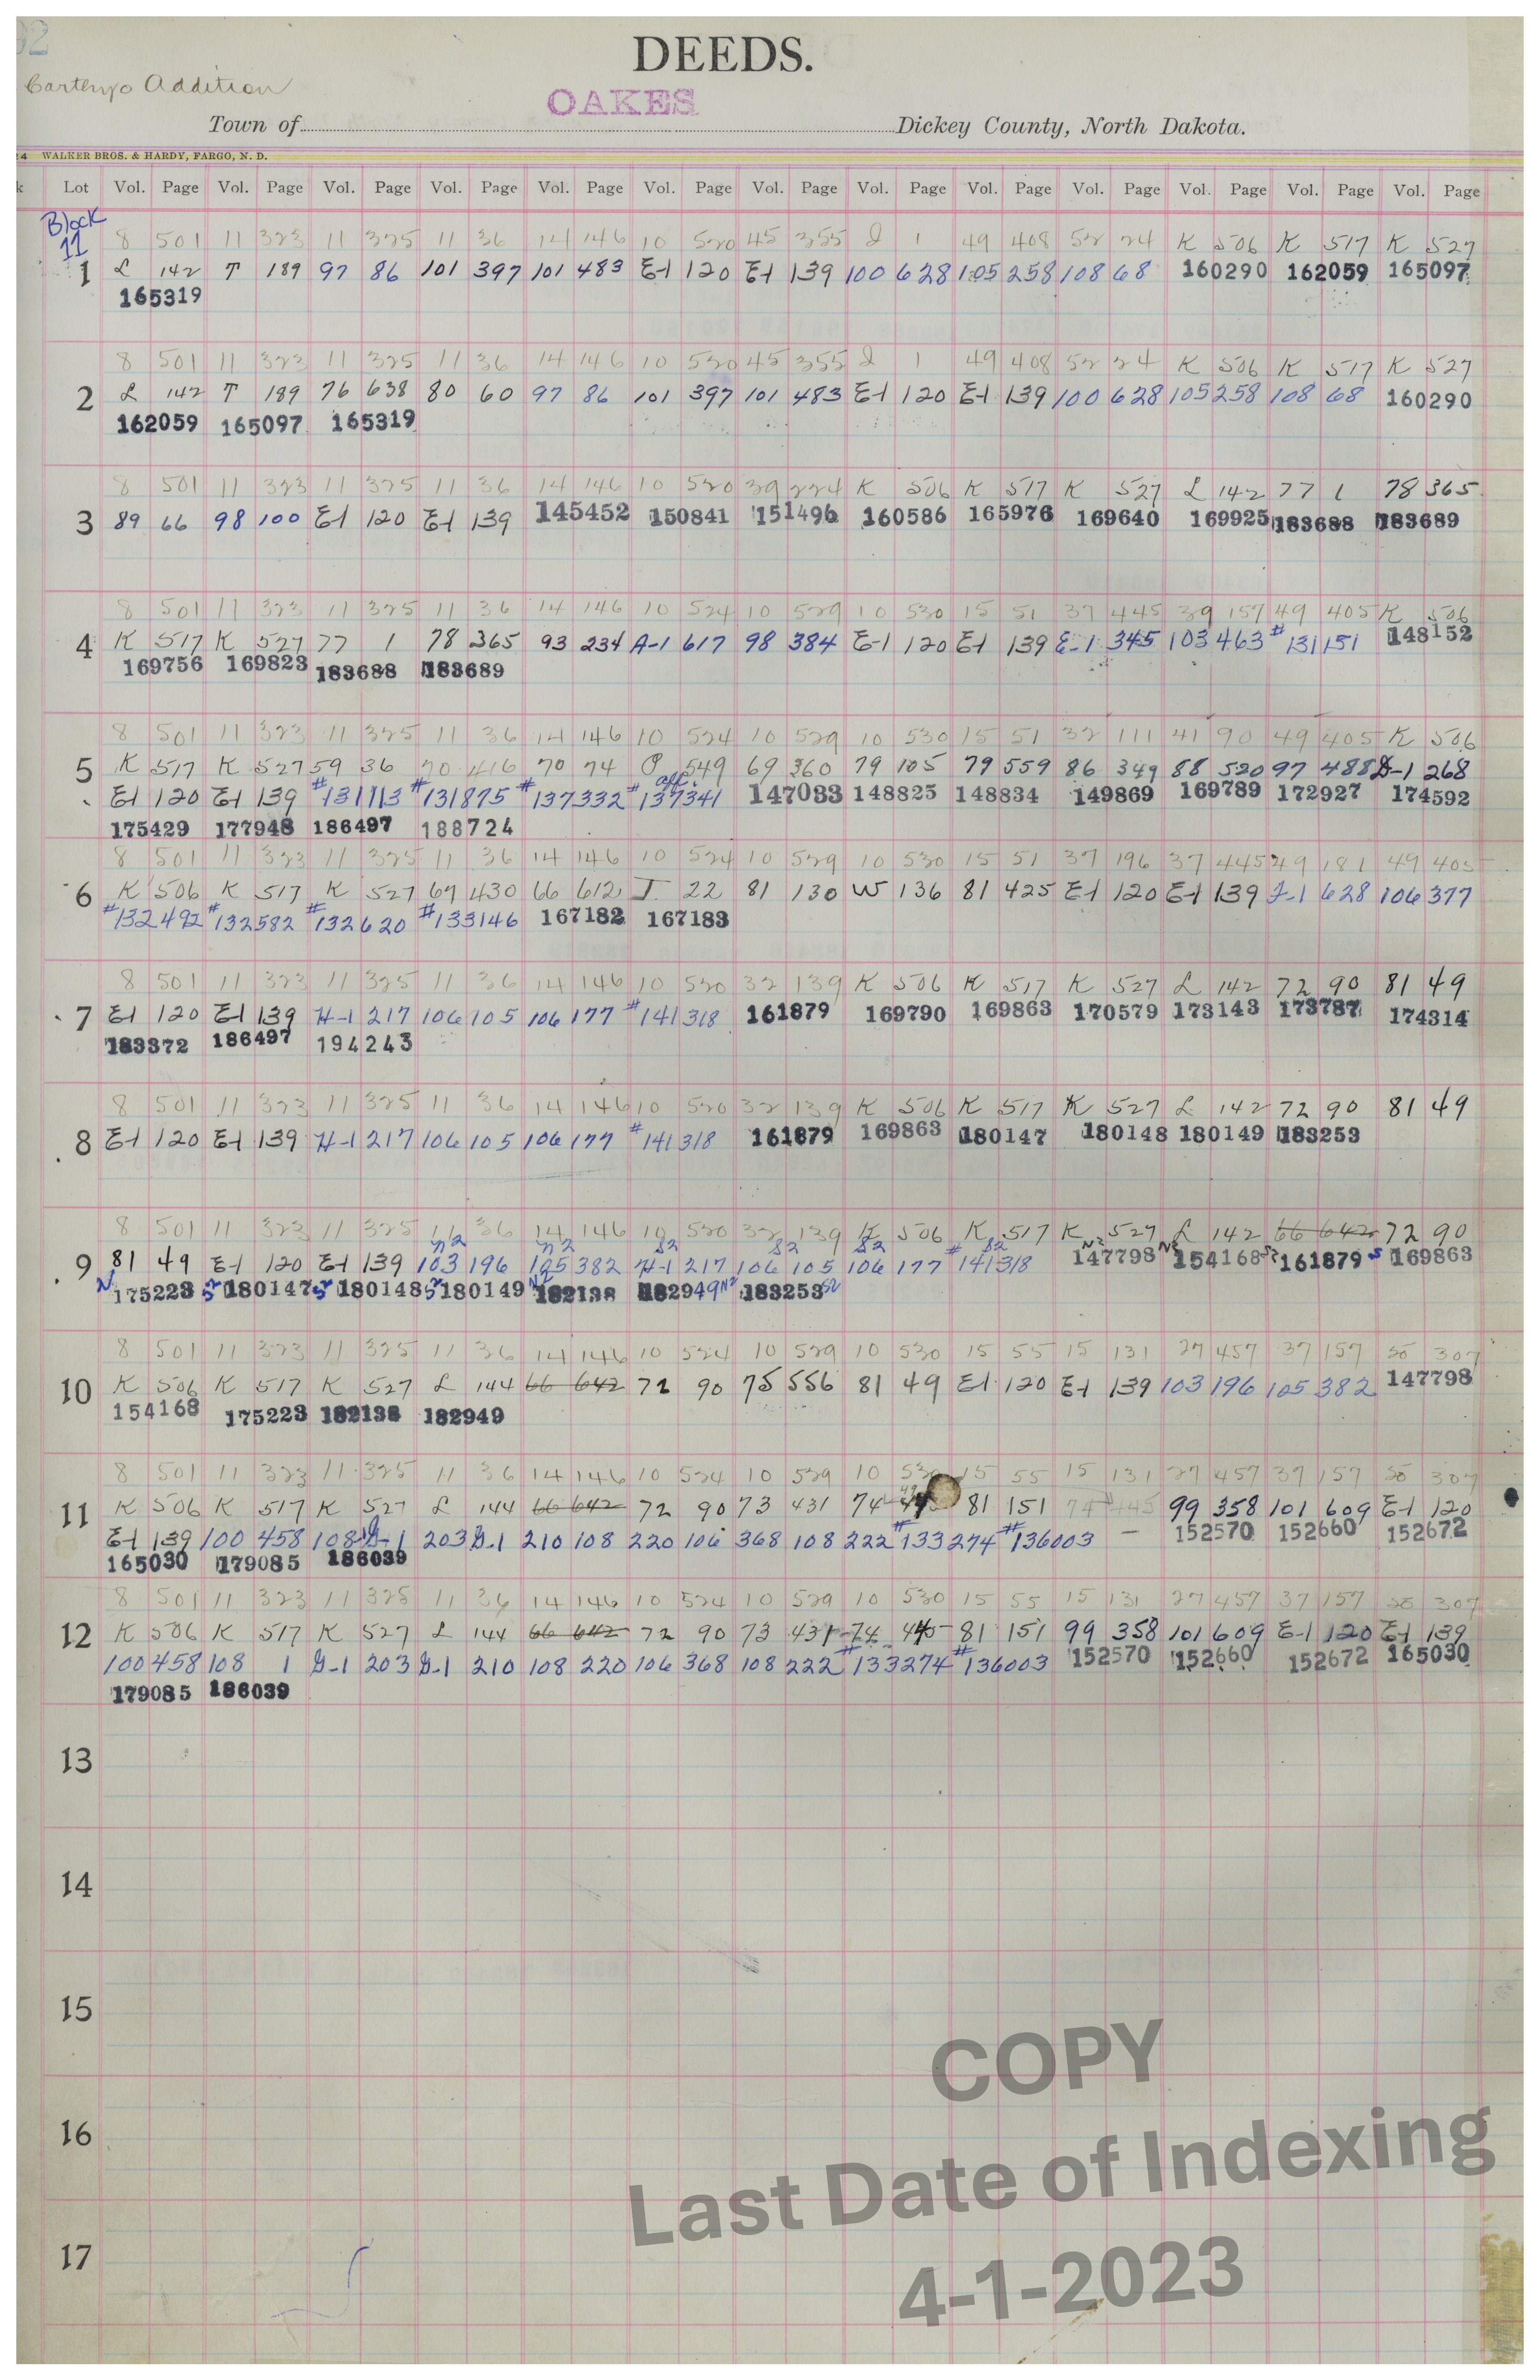 92
DEEDS.
Addition
OAKES
Town of Dickey County, North Dakota.
24 WALKER BROS. & HARDY, FARGO, N. D.
k Lot Vol. Page Vol. Page Vol. Page Vol. Page Vol. Page Vol. Page Vol. Page Vol. Page Vol. Page Vol. Page Vol. Page Vol. Page Vol. Page
Block
11
8 501 11 323 11 325 11 36 14 146 10 520 45 355 J 1 49 408 52 24 K 506 K 517 K 527
1 L 142 T 189 97 86 101 397 101 483 E-1 120 E-1 139 100 628 105 258 108 68 160290 162059 165097
165319
8 501 11 323 11 325 11 36 14 146 10 520 45 355 J 1 49 408 52 24 K 506 K 517 K 527
2 L 142 T 189 76 638 80 60 97 86 101 397 101 483 E-1 120 E-1 139 100 628 105 258 108 68 160290
162059 165097 165319
8 501 11 323 11 325 11 36 14 146 10 520 39 224 K 506 K 517 K 527 L 142 77 1 78 365
3 89 66 98 100 E-1 120 E-1 139 145452 150841 151496 160586 165976 169640 169925 183688 183689
8 501 11 323 11 325 11 36 14 146 10 524 10 529 10 530 15 51 37 445 39 157 49 405 K 506
4 K 517 K 527 77 1 78 365 93 234 A-1 617 98 384 E-1 120 E-1 139 E-1 345 103 463 #131151 148152
169756 169823 183688 183689
8 501 11 323 11 325 11 36 14 146 10 524 10 529 10 530 15 51 32 111 41 90 49 405 K 506
5 K 517 K 527 59 36 70 416 70 74 P 549 69 360 79 105 79 559 86 349 88 520 97 488 D-1 268
E-1 120 E-1 139 #131113 #131875 #137332 #137341 147033 148825 148834 149869 169789 172927 174592
175429 177948 186497 188724
8 501 11 323 11 325 11 36 14 146 10 524 10 529 10 530 15 51 37 196 37 445 49 181 49 405
6 K 506 K 517 K 527 69 430 66 612 J 22 81 130 W 136 81 425 E-1 120 E-1 139 F-1 628 106 377
#132492 #132582 #132620 #133146 167182 167183
8 501 11 323 11 325 11 36 14 146 10 520 32 139 K 506 K 517 K 527 L 142 72 90 81 49
7 E-1 120 E-1 139 H-1 217 106 105 106 177 #141318 161879 169790 169863 170579 173143 173787 174314
183372 186497 194243
8 501 11 323 11 325 11 36 14 146 10 520 32 139 K 506 K 517 K 527 L 142 72 90 81 49
8 E-1 120 E-1 139 H-1 217 106 105 106 177 #141318 161879 169863 180147 180148 180149 183253
8 501 11 323 11 325 11 36 14 146 10 520 32 139 K 506 K 517 K 527 L 142 66 642 72 90
N2 N2 S2 S2 S2 S2
9 81 49 E-1 120 E-1 139 103 196 105 382 H-1 217 106 105 106 177 #141318 N2 147798 N2 154168 S2 161879 S 169863
N 175223 S2 180147 S2 180148 S2 180149 N2 182138 182949 N2 183253 S2
8 501 11 323 11 325 11 36 14 146 10 524 10 529 10 530 15 55 15 131 27 457 37 157 307
10 K 506 K 517 K 527 L 144 66 642 72 90 75 556 81 49 E-1 120 E-1 139 103 196 105 382 147798
154168 175223 182138 182949
8 501 11 323 11 325 11 36 14 146 10 524 10 529 10 530 15 55 15 131 27 457 37 157 307
11 K 506 K 517 K 527 L 144 66 642 72 90 73 431 74 81 151 74 445 99 358 101 609 E-1 120
E-1 139 100 458 108 1 G-1 203 G-1 210 108 220 106 368 108 222 #133274 #136003 — 152570 152660 152672
165030 179085 186039
8 501 11 323 11 325 11 36 14 146 10 524 10 529 10 530 15 55 15 131 27 457 37 157 307
12 K 506 K 517 K 527 L 144 66 642 72 90 73 431 74 445 81 151 99 358 101 609 E-1 120 E-1 139
100 458 108 1 G-1 203 G-1 210 108 220 106 368 108 222 #133274 #136003 152570 152660 152672 165030
179085 186039
13
14
15
16
17
COPY
Last Date of Indexing
4-1-2023